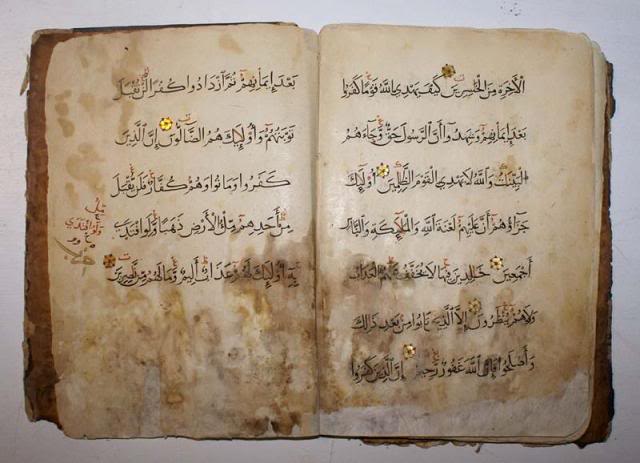 الْأَخِرَةِ مِنَ الْخَسِرِينَ كَيْفَ يَهْدِي اللَّهُ قَوْمًا كَفَرُوا
بَعْدَ إِيمَانِهِمْ وَشَهِدُوا أَنَّ الرَّسُولَ حَقٌّ وَجَاءَهُمُ
الْبَيِّنَتُ وَاللَّهُ لَا يَهْدِي الْقَوْمَ الظَّلِمِينَ أُولَئِكَ
جَزَاؤُهُمْ أَنَّ عَلَيْهِمْ لَعْنَةَ اللَّهِ وَالْمَلَئِكَةِ وَالنَّاسِ
أَجْمَعِينَ خَلِدِينَ فِيهَا لَا يُخَفَّفُ عَنْهُمُ الْعَذَابُ
وَلَا هُمْ يُنْظَرُونَ إِلَّا الَّذِينَ تَابُوا مِنْ بَعْدِ ذَلِكَ
وَأَصْلَحُوا فَإِنَّ اللَّهَ غَفُورٌ رَحِيمٌ إِنَّ الَّذِينَ كَفَرُوا
بَعْدَ إِيمَانِهِمْ ثُمَّ ازْدَادُوا كُفْرًا لَنْ تُقْبَلَ
تَوْبَتُهُمْ وَأُولَئِكَ هُمُ الضَّالُّونَ إِنَّ الَّذِينَ
كَفَرُوا وَمَاتُوا وَهُمْ كُفَّارٌ فَلَنْ يُقْبَلَ
مِنْ أَحَدِهِمْ مِلْءُ الْأَرْضِ ذَهَبًا وَلَوِ افْتَدَى
بِهِ أُولَئِكَ لَهُمْ عَذَابٌ أَلِيمٌ وَمَا لَهُمْ مِنْ نَصِرِينَ